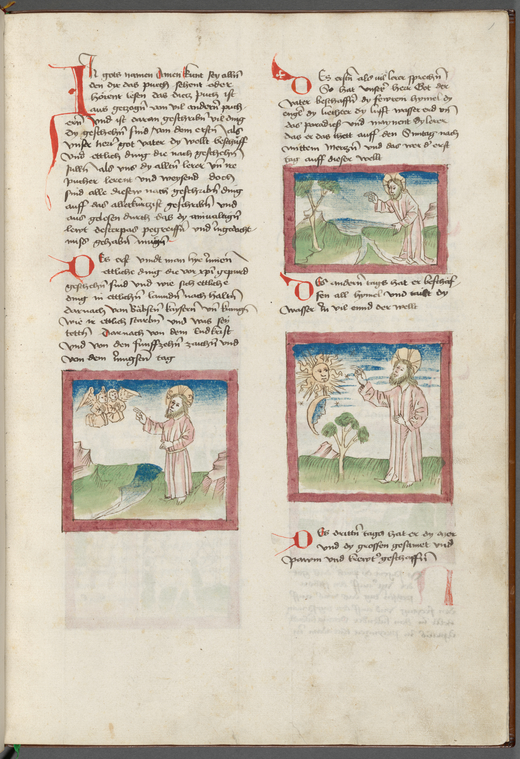 In gots namen Amen kunt sey allen
den die das puech sehent oder
horent lesen das dicz puch ist
aus geczogen von vil andern puch
ern Und ist daran geschriben vil ding
dy geschehen sind von dem ersten als
unser herr got vater dy wellt beschuff
Und ettlich ding die nach geschehen
sullen als uns dy allten lerer in irn
pucher lerent und weysend doch
sind alle dieselben nach geschriben ding
auff das allerkurczist geschriben und
aus gelesen durch das dy
lewt dester pas
gehaben mugen
Das erst vindt man hye Innen
ettliche ding die vor xpi gepurd
geschehen sind und wie sich ettliche
ding in ettlichen landen nach
darnach von Babsten kaysern und kunigen
wie sy ettlich storben und was sey
tetten Darnach von dem Endkrist
Und von den funffzehn zaichen und
von dem Jungsten tag
Des ersten als vil lerer sprechen
So hat unser herr Got der
vater beschaffen dy fewrein hymel dy
engel dy liechter dy lufft wasser und
das paradies und
das er das thett auff den Suntag nach
mittem Merczen und das wer der erst
tag auff dieser wellt
Des andern tags hat er beschaf
fen all hymel und tailt dy
wasser In vil ennd der wellt
Des dritten tags hat er dy
und dy grossen gesamet und
pawm und krewt geschaffen